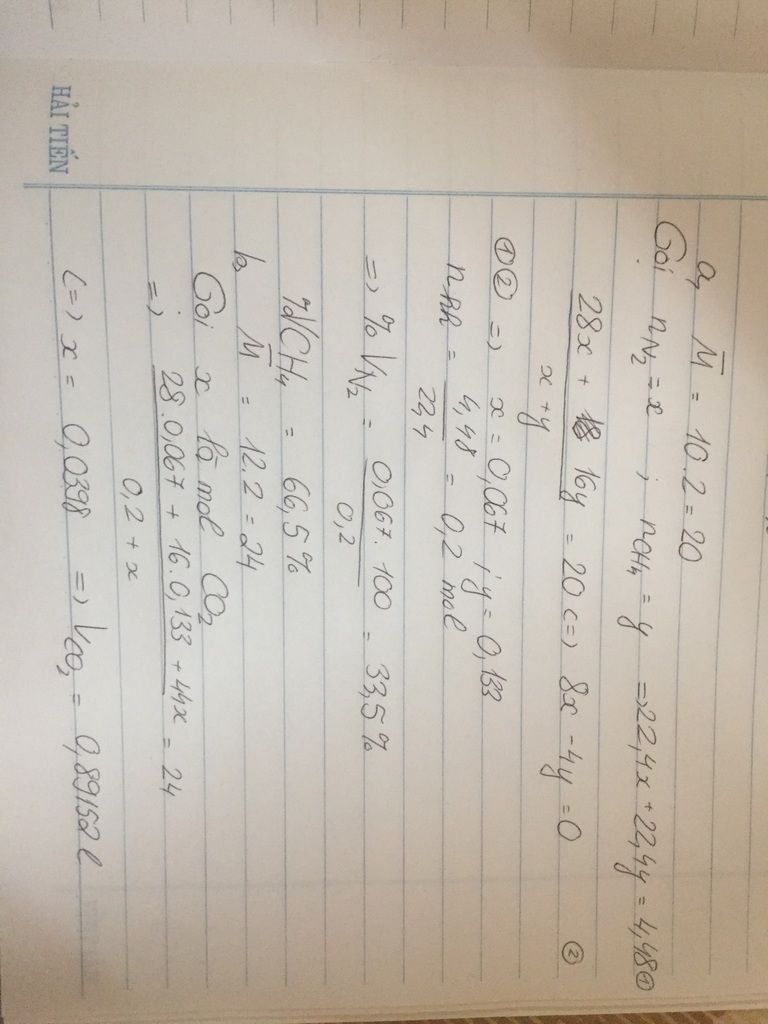 HẢI TIẾN
a, M̄ = 10.2 = 20
Gọi nN₂ = x ; nCH₄ = y => 22,4x + 22,4y = 4,48 ①
28x + 16y / x+y = 20 <=> 8x - 4y = 0 ②
①② => x = 0,067 ; y = 0,133
nhh = 4,48 / 22,4 = 0,2 mol
=> % VN₂ = 0,067.100 / 0,2 = 33,5%
%VCH₄ = 66,5%
b, M̄ = 12.2 = 24
Gọi x là mol CO₂
=> 28.0,067 + 16.0,133 + 44x / 0,2 + x = 24
<=> x = 0,0398 => VCO₂ = 0,89152 l